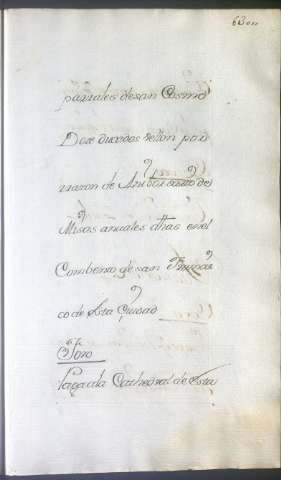 parrales de san Cosme
Doze ducados vellon por
razon de
Misas anuales dhas en el
Combento de san Francis
co de Esta Ciudad
Otoro
Paga a la Cathedral de Esta